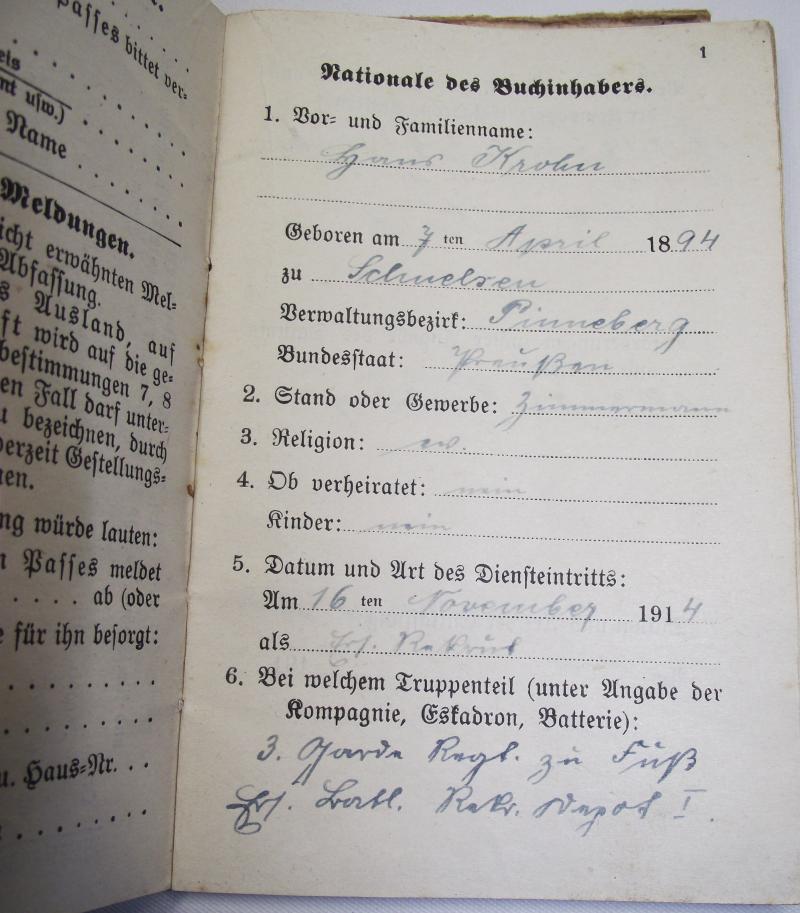 Passes bittet ver-
nt usw.)
Name
Meldungen.
icht erwähnten Mel-
Abfassung.
s Ausland, auf
ft wird auf die ge-
bestimmungen 7, 8
en Fall darf unter-
u bezeichnen, durch
derzeit Gestellungs-
nen.
ng würde lauten:
n Passes meldet
. . . . . ab (oder
e für ihn besorgt:
u. Haus-Nr. . .
1
Nationale des Buchinhabers.
1. Vor- und Familienname:
Hans Krohn
Geboren am 7 ten April 1894
zu Schnelsen
Verwaltungsbezirk: Pinneberg
Bundesstaat: Preußen
2. Stand oder Gewerbe: Zimmermann
3. Religion: ev.
4. Ob verheiratet: nein
Kinder: nein
5. Datum und Art des Diensteintritts:
Am 16 ten November 1914
als Ers. Rekrut
6. Bei welchem Truppenteil (unter Angabe der
Kompagnie, Eskadron, Batterie):
3. Garde Regt. zu Fuß
Ers. Batl. Rekr. Depot I.